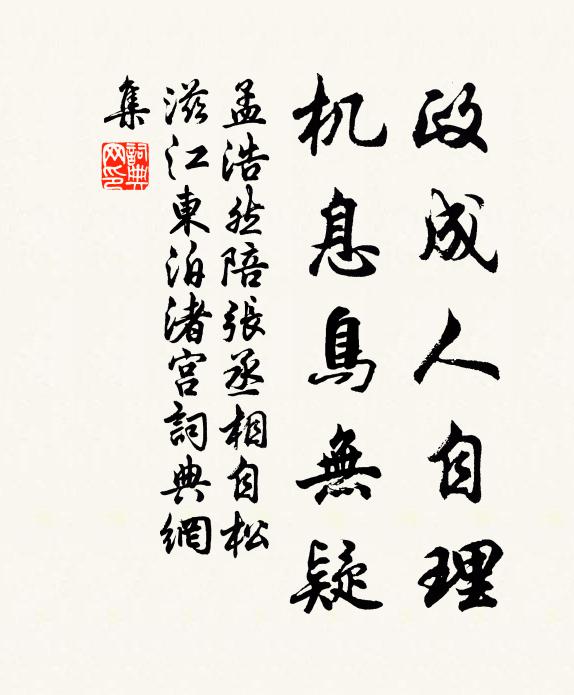 政成人自理
机息鳥無疑
孟浩然陪張丞相自松
滋江東泊渚宮詞典網
集
詞典
网印